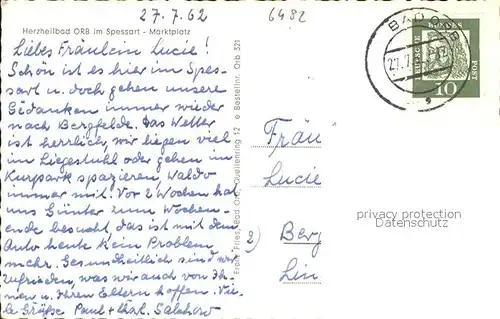 27.7.62
6482
Herzheilbad ORB im Spessart - Marktplatz
Liebes Fräulein Lucie!
Schön ist es hier im Spes-
sart u. doch gehen unsere
Gedanken immer wieder
nach Bergfelde. Das Wetter
ist herrlich, wir liegen viel
im Liegestuhl oder gehen im
Kurpark spazieren, Waldo
immer mit. Vor 2 Wochen hat
uns Günter zum Wochen-
ende besucht, das ist mit dem
Auto heute kein Problem
mehr. Gesundheitlich sind wir
zufrieden, was wir auch von Ih-
nen u. Ihren Eltern hoffen. Vie-
le Grüße Paul +
Ernst Fries, Bad Orb, Quellenring 12 Bestellnr. Orb 321
BAD ORB
27.7.
10
POST
Fräu
Lucie
2) Berg
Lin
privacy protection
Datenschutz